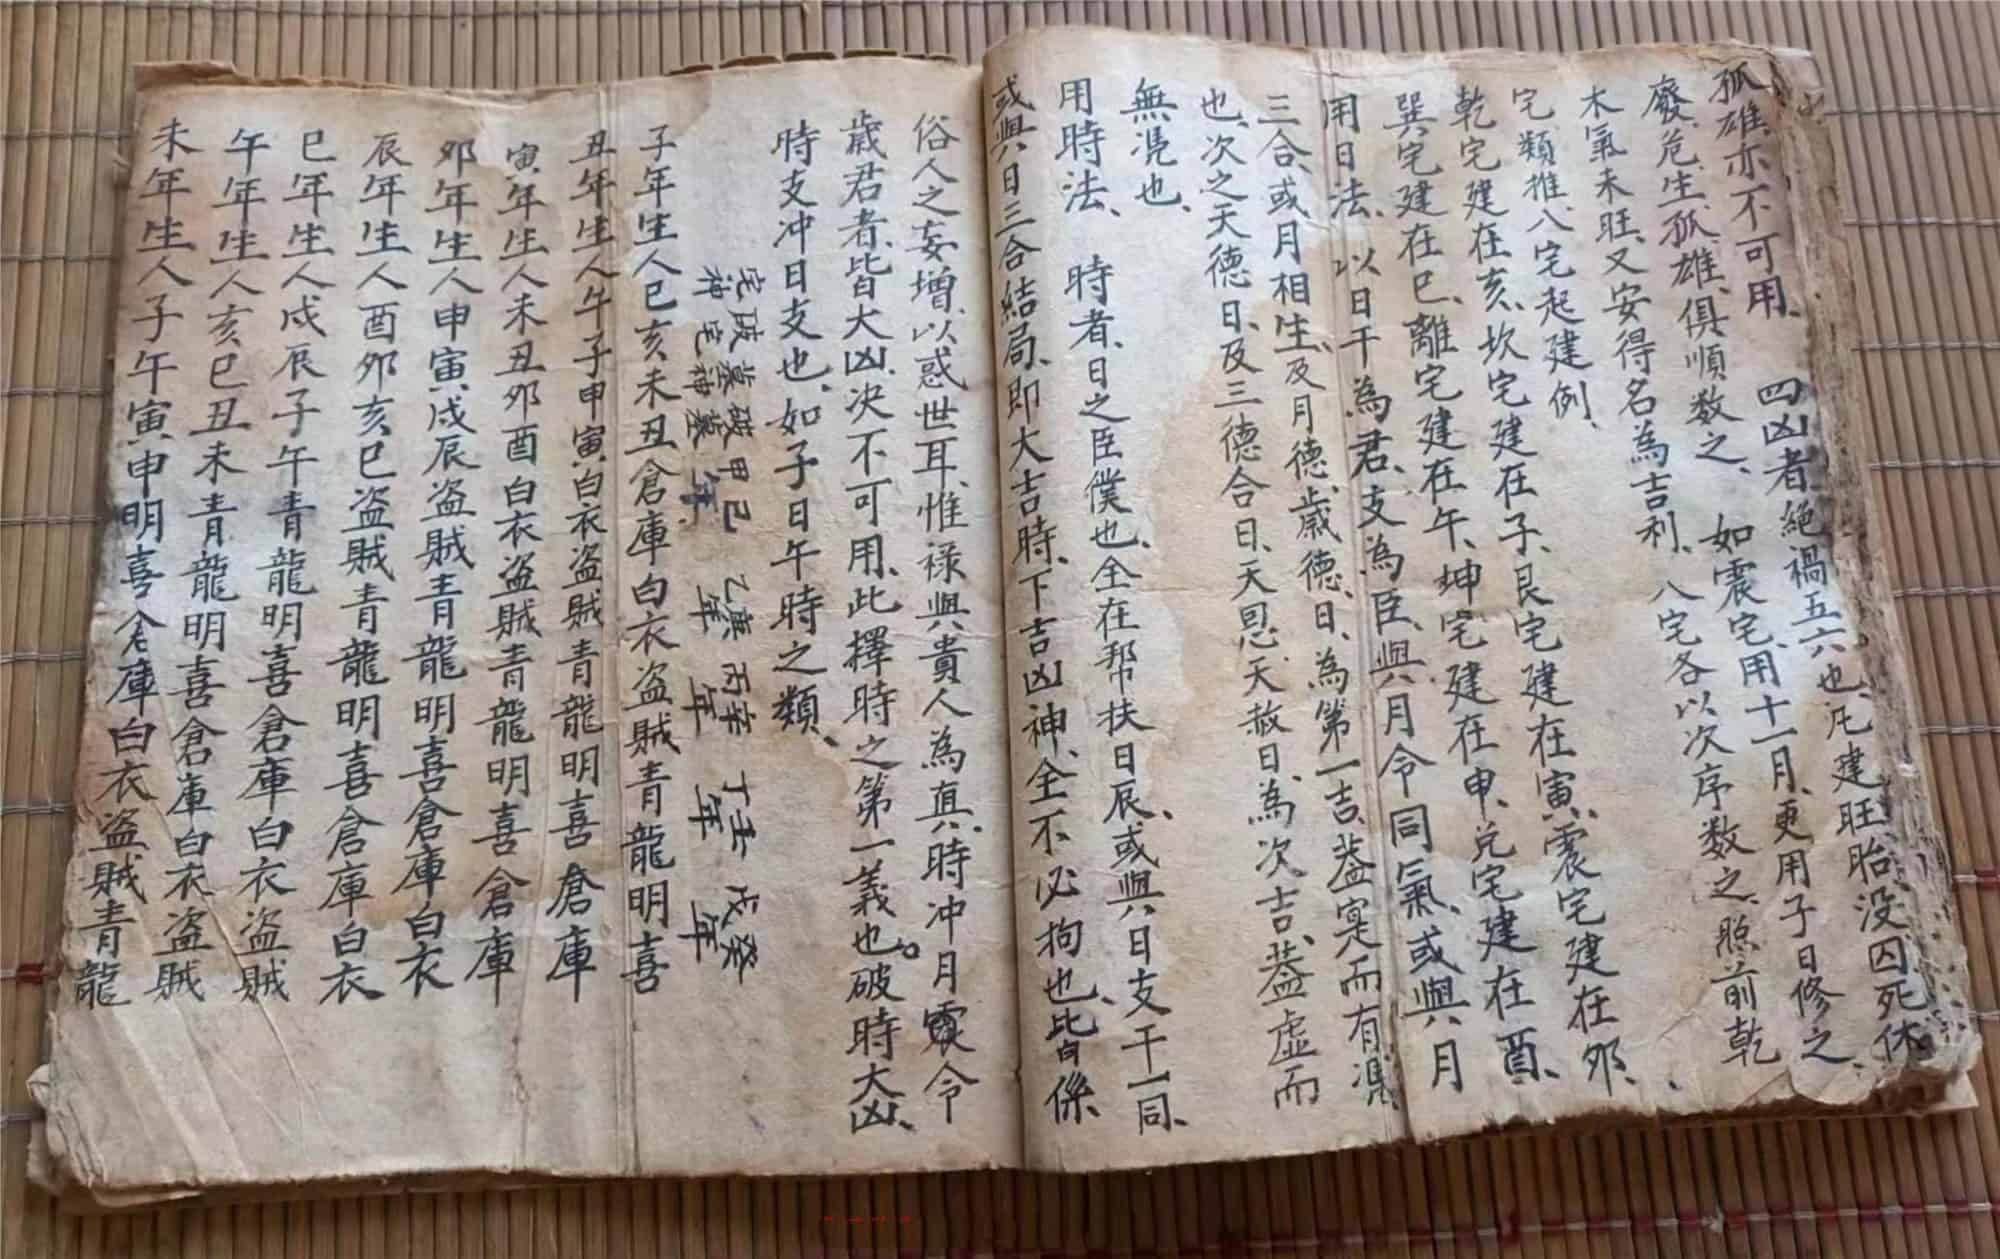 孤雄亦不可用、 四凶者絕禍五六也、凡建旺胎没囚死休
廢危生孤雄、俱順数之、 如震宅、用十一月、更用子日修之、
木氣未旺、又安得名為吉利、 八宅各以次序数之、照前乾
宅類推、八宅起建例、
乾宅建在亥、坎宅建在子、艮宅建在寅、震宅建在卯、
巽宅建在巳、離宅建在午、坤宅建在申、兌宅建在酉、
用日法、以日干為君、支為臣、與月令同氣、或與月
三合或月相生、及月德、歲德、日、為第一吉、蓋寔而有憑、
也、次之天德日、及三德合日、天恩、天赦日、為次吉、蓋虛而
無憑也、
用時法、 時者、日之臣僕也、全在幫扶日辰、或與日支干一同、
或與日三合結局、即大吉時、下吉凶神、全不必拘也、此皆係
俗人之妄增、以惑世耳、惟禄與貴人為真、時冲月令
歲君者、皆大凶、决不可用、此擇時之第一義也。破時大凶、
時支冲日支也、如子日午時之類、
甲己年 乙庚年 丙辛年 丁壬年 戊癸年
子年生人巳亥未丑倉庫白衣盜賊青龍明喜
丑年生人午子申寅白衣盜賊青龍明喜倉庫
寅年生人未丑卯酉白衣盜賊青龍明喜倉庫
卯年生人申寅戌辰盜賊青龍明喜倉庫白衣
辰年生人酉卯亥巳盜賊青龍明喜倉庫白衣
巳年生人戌辰子午青龍明喜倉庫白衣盜賊
午年生人亥巳丑未青龍明喜倉庫白衣盜賊
未年生人子午寅申明喜倉庫白衣盜賊青龍